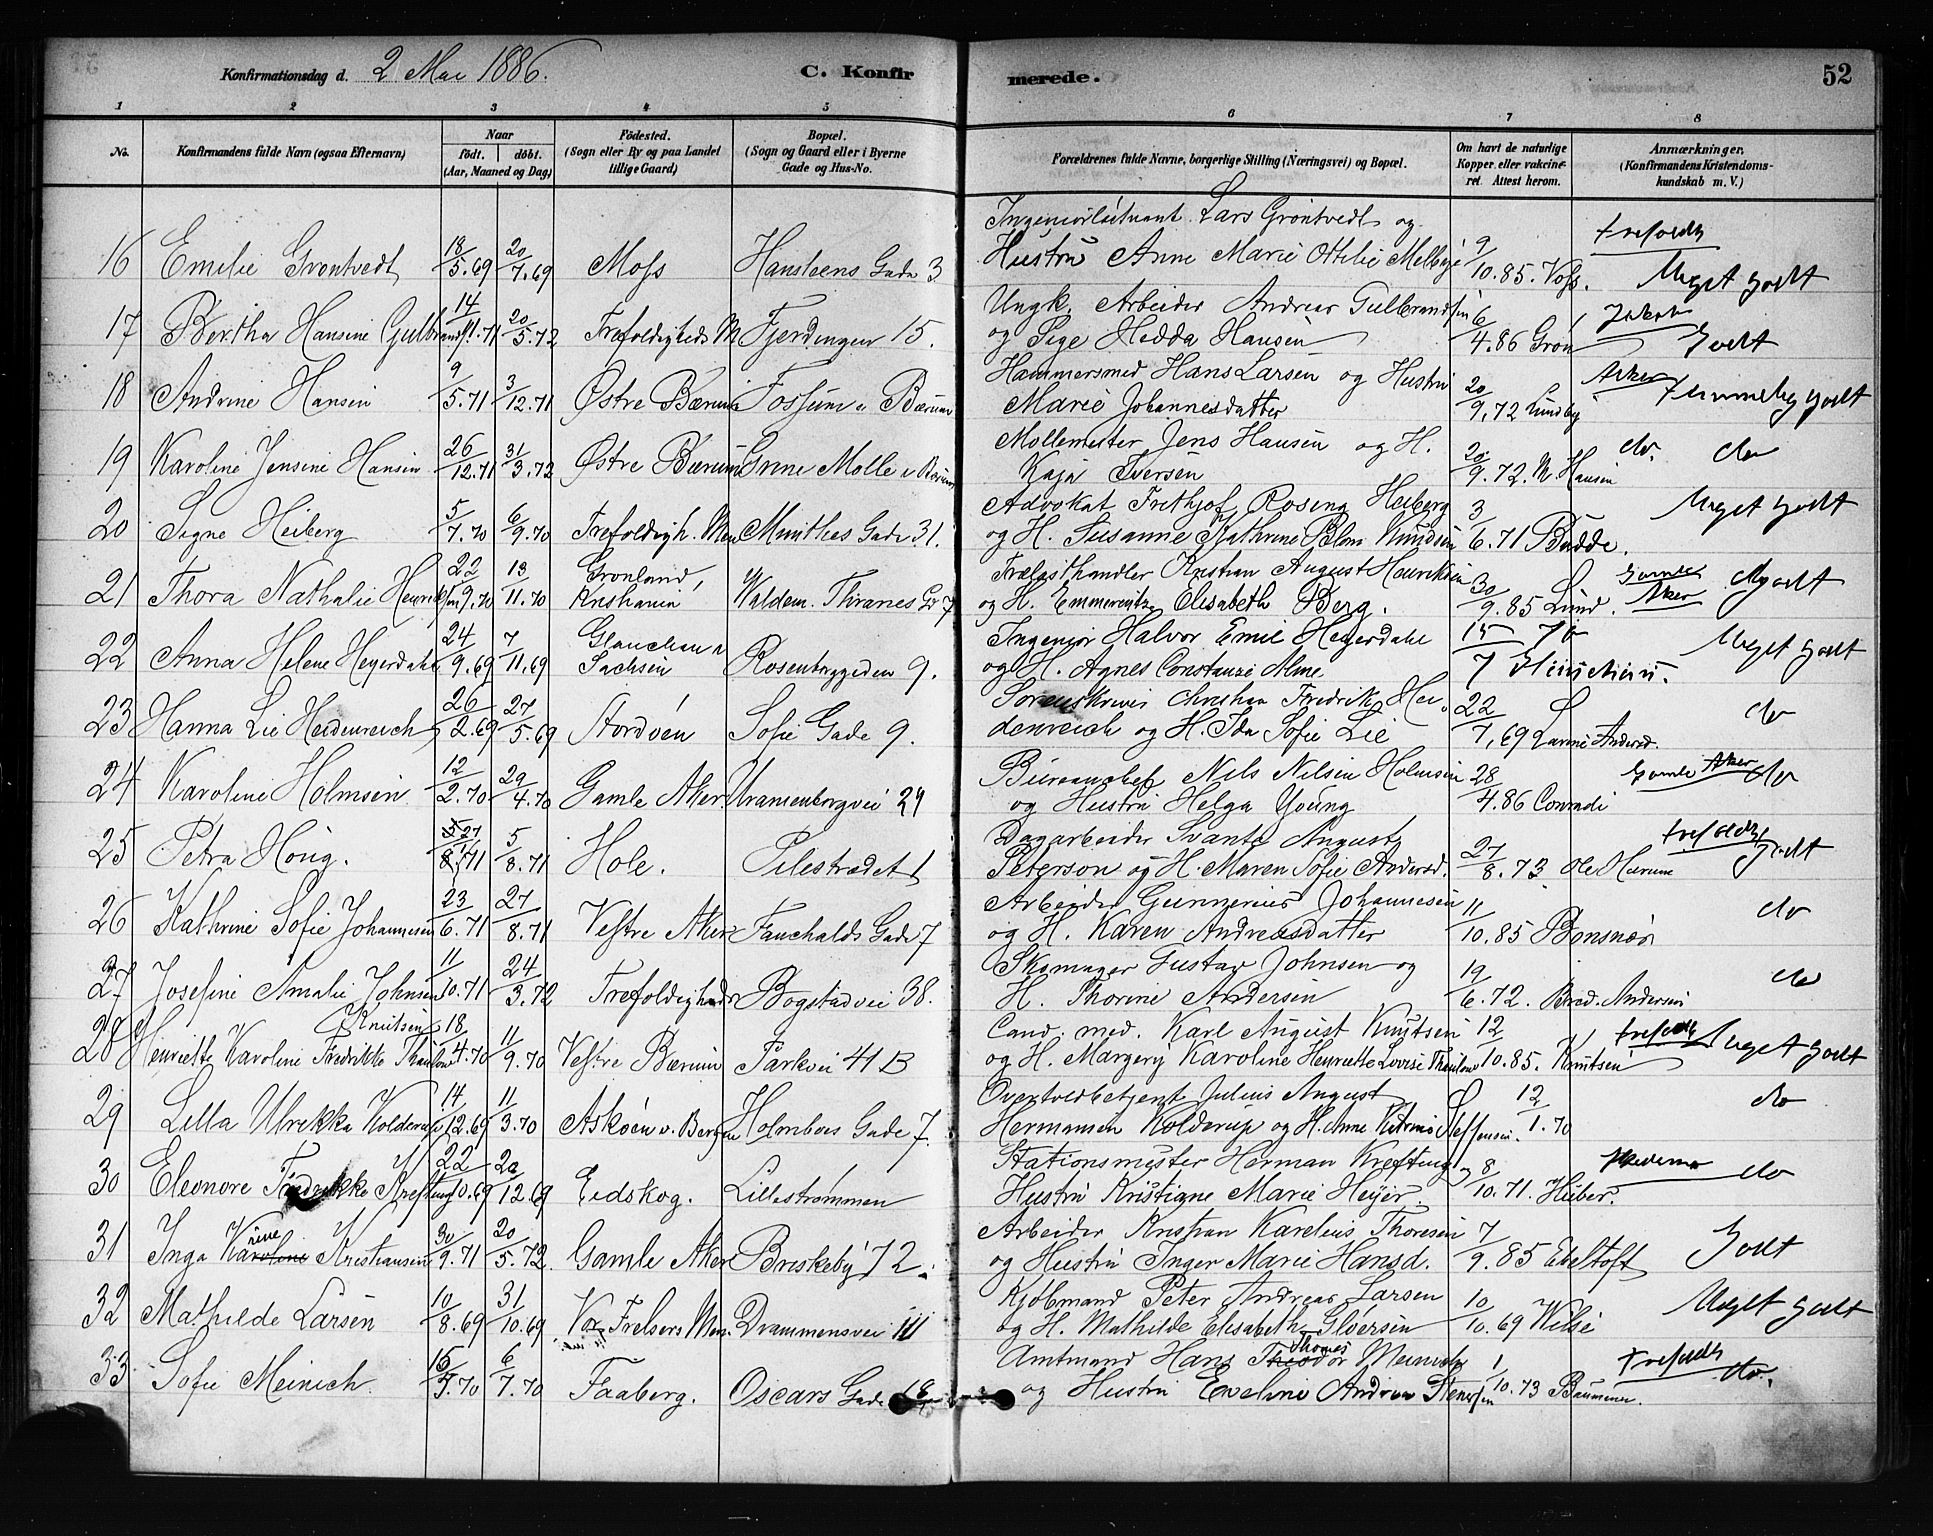 Konfirmationsdag d. 2 Mai 1886. C. Konfirmerede. 52
1 2 3 4 5 6 7 8
No. Konfirmandens fulde Navn (ogsaa Efternavn) Naar født. døbt. (Aar, Maaned og Dag) Födested. (Sogn eller By og paa Landet tillige Gaard) Bopæl. (Sogn og Gaard eller i Byerne Gade og Hus-No. Forældrenes fulde Navne, borgerlige Stilling (Næringsvei) og Bopæl. Om havt de naturlige Kopper eller vakcineret. Attest herom. Anmærkninger, (Konfirmandens Kristendomskundskab m. V.)
Ingeniørløitnant Lars Grøntvedt og
16 Emilie Grøntvedt 18/5.69 20/7.69 Moss Hansteens Gade 3 Hustru Anne Marie Ottilie Melbye 9/10.85. Voss. Trefoldh Meget godt
Ungk. Arbeider Andreas Gulbrandsen
17 Bertha Hansine Gulbrands 14/11.71 20/5.72 Trefoldigheds M Fjerdingen 15. og Pige Hedda Hansen 6/4.86 Grøn Jakob Godt
Hammersmed Hans Larsen og Hustru
18 Andrine Hansen 9/5.71 3/12.71 Østre Bærum Fossum i Bærum Marie Johannesdatter 20/9.72 Lundby Aker Temmelig godt
Møllemester Jens Hansen og H.
19 Karoline Jensine Hansen 26/12.71 31/3.72 Østre Bærum Grini Mølle i Bærum Kaja Iversen 20/9.72. N. Hansen do. do
Advokat Frithjof Rosing Heiberg
20 Signe Heiberg 5/7.70 6/9.70 Trefoldigh. Men Munthes Gade 31. og H. Susanne Kathrine Blom Knudsen 3/6.71 Budde. Meget godt
Trælasthandler Kristian August Henriksen
21 Thora Nathalie Henriksen 22/9.70 13/11.70 Grønland, Kristiania Waldem. Thranes G 7 og H. Emmerentze Elisabeth Berg. 30/9.85 Lund. Gamle Aker Mgodt
Ingeniør Halvor Emil Heyerdahl
22 Anna Helene Heyerdahl 24/9.69 7/11.69 Glauchau i Sachsen Rosenborggaden 9. og H. Agnes Constanze Alme 15/7 70 Meget godt
Sorenskriver Christian Fredrik Hei-
23 Hanna Lie Heidenreich 26/2.69 27/5.69 Stordøen Sofie Gade 9. denreich og H. Ida Sofie Lie 22/7.69 Andersd. do
Bureauchef Nils Nilsen Holmsen
24 Karoline Holmsen 12/2.70 29/4.70 Gamle Aker Uranienborgvei 29 og Hustru Helga Young 28/4.86 Conradi Gamle Aker do
Dagarbeider Svante August
25 Petra Høug. 27/1.71 5/8.71 Hole. Pilestrædet 1 Peterson og H. Maren Sofie Andersd. 27/8.73 Trefoldh Godt
Arbeider Gunnerius Johannesen
26 Kathrine Sofie Johannesen 23/6.71 27/8.71 Vestre Aker Fauchalds Gade 7 og H. Karen Andreasdatter 11/10.85 Bonsnæs do
Skomager Gustav Johnsen og
27 Josefine Amalie Johnsen 11/10.71 24/3.72 Trefoldigheds Bogstadvei 38. H. Thorine Andersen 19/6.72. Bred. Andersen do
Knutsen Cand. med. Karl August Knutsen
28 Henriette Karoline Fredrikke Thaulow 18/4.70 11/9.70 Vestre Bærum Parkvei 41 B og H. Margery Karoline Henriette Lovise Thaulow 12/10.85. Knutsen Trefoldh Meget godt
Overtoldbetjent Julius August
29 Lilla Ulrikka Kolderup 14/12.69 11/3.70 Askøen v. Bergen Holmboes Gade 7. Hermansen Kolderup og H. Anne Katrine Steffensen. 12/1.70 do
Stationsmester Herman Krefting og
30 Eleonore Fredrikke Krefting 22/10.69 29/12.69 Eidskog. Lillestrømmen Hustru Kristiane Marie Heyer. 8/10.71. Huber. Skedsmo do
Arbeider Kristian Karelius Thoresen
31 Inga Karoline rine Kristiansen 30/9.71 20/5.72. Gamle Aker Briskeby 72. og Hustru Inger Marie Hansd. 7/9.85 Ebeltoft Godt
Kjøbmand Peter Andreas Larsen
32 Mathilde Larsen 10/8.69 31/10.69 Vor Frelsers Men. Drammensvei og H. Mathilde Elisabeth Gløersen 10/10.69 Wilse Meget godt
Amtmand Hans Theodor Thomes Meinich
33 Sofie Meinich. 15/5.70 6/7.70 Faaberg. Oscars Gade og Hustru Eveline Andrea Stensen 1/10.73 Trefoldh do.